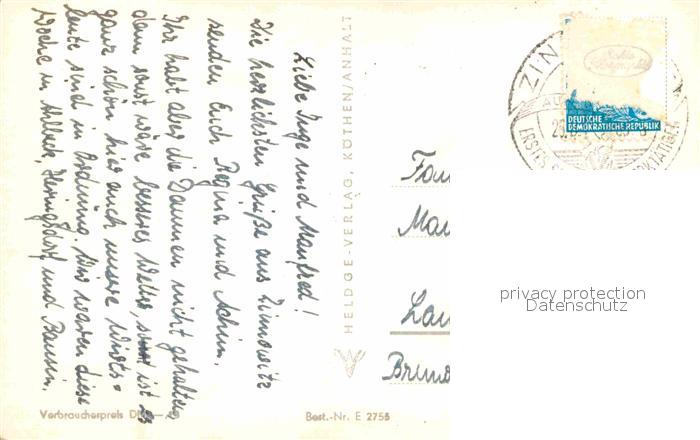 Liebe Inge und Manfred!
Die herzlichsten Grüße aus Zinnowitz
senden Euch Regina und Achim.
Ihr habt aber die Daumen nicht gehalten
denn sonst wäre besseres Wetter, sonst ist es
ganz schön hier auch unsere Wirts=
leute sind in Ordnung. Wir waren diese
Woche in Ahlbeck, Heringsdorf und Bansin.
HELDGE-VERLAG, KÖTHEN/ANHALT
DEUTSCHE
DEMOKRATISCHE REPUBLIK
ZIN
ERSTES
Fam
Man
Lau
privacy protection
Datenschutz
Verbraucherpreis
Best.-Nr. E 2755